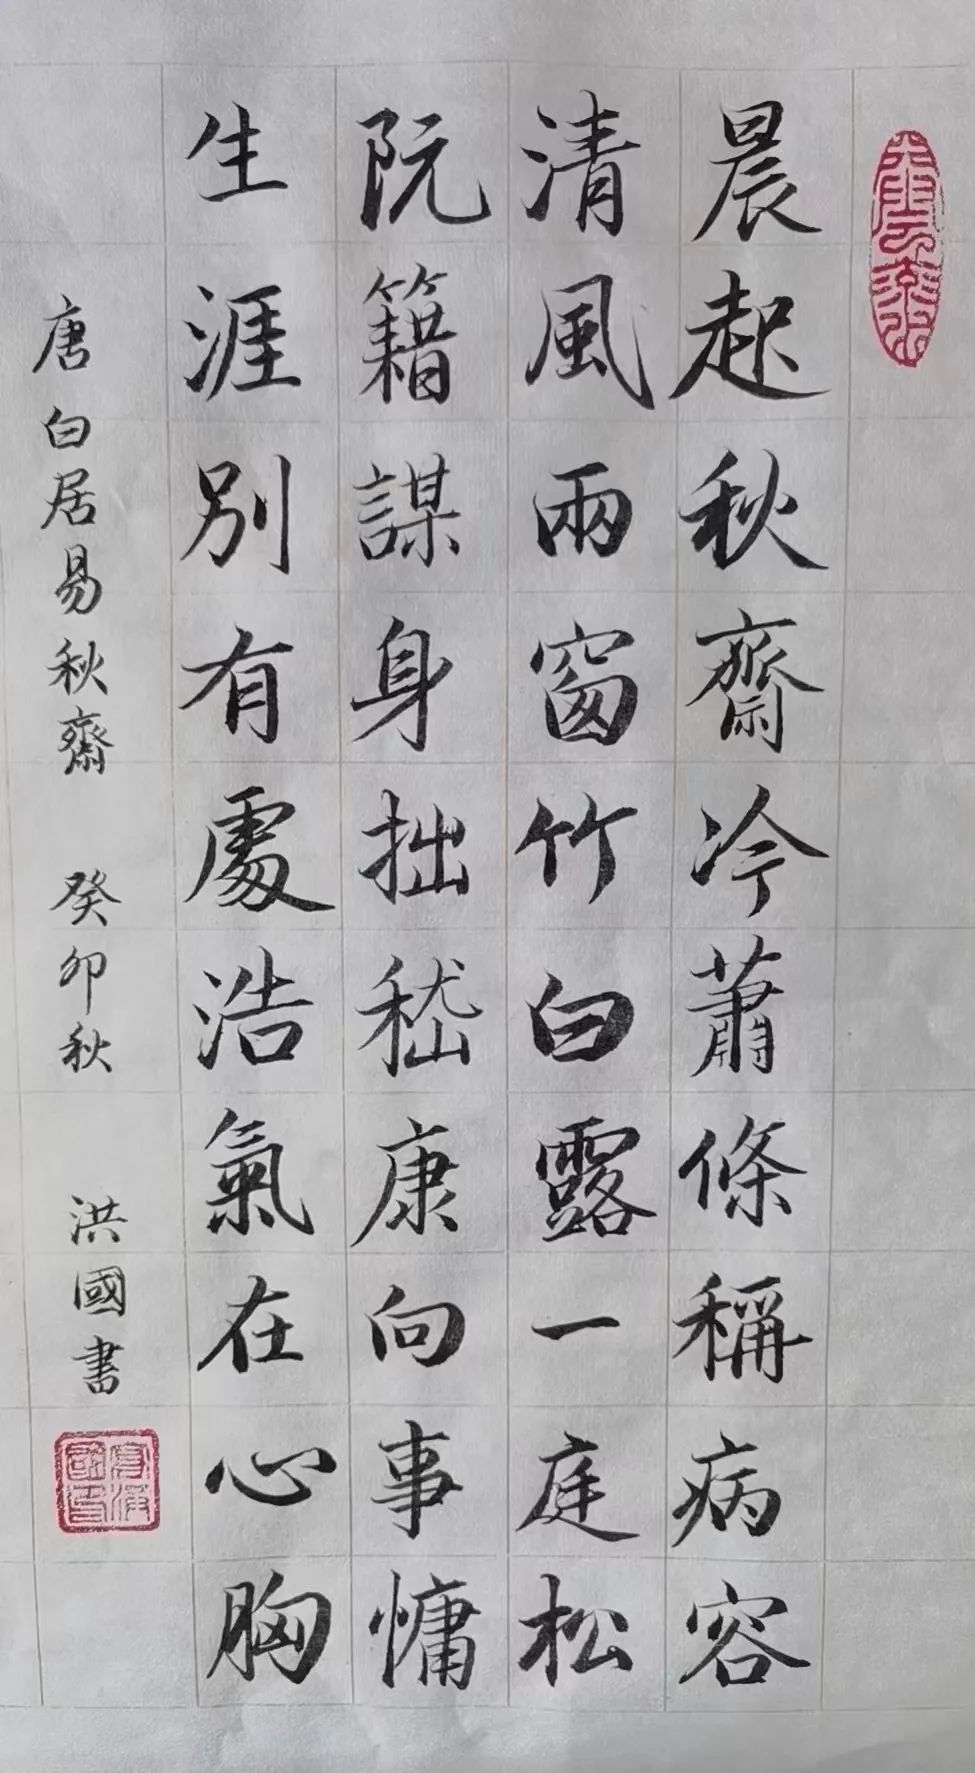 晨起秋齋冷蕭條稱病容
清風兩窗竹白露一庭松
阮籍謀身拙嵇康向事慵
生涯別有處浩氣在心胸
唐白居易秋齋 癸卯秋 洪國書